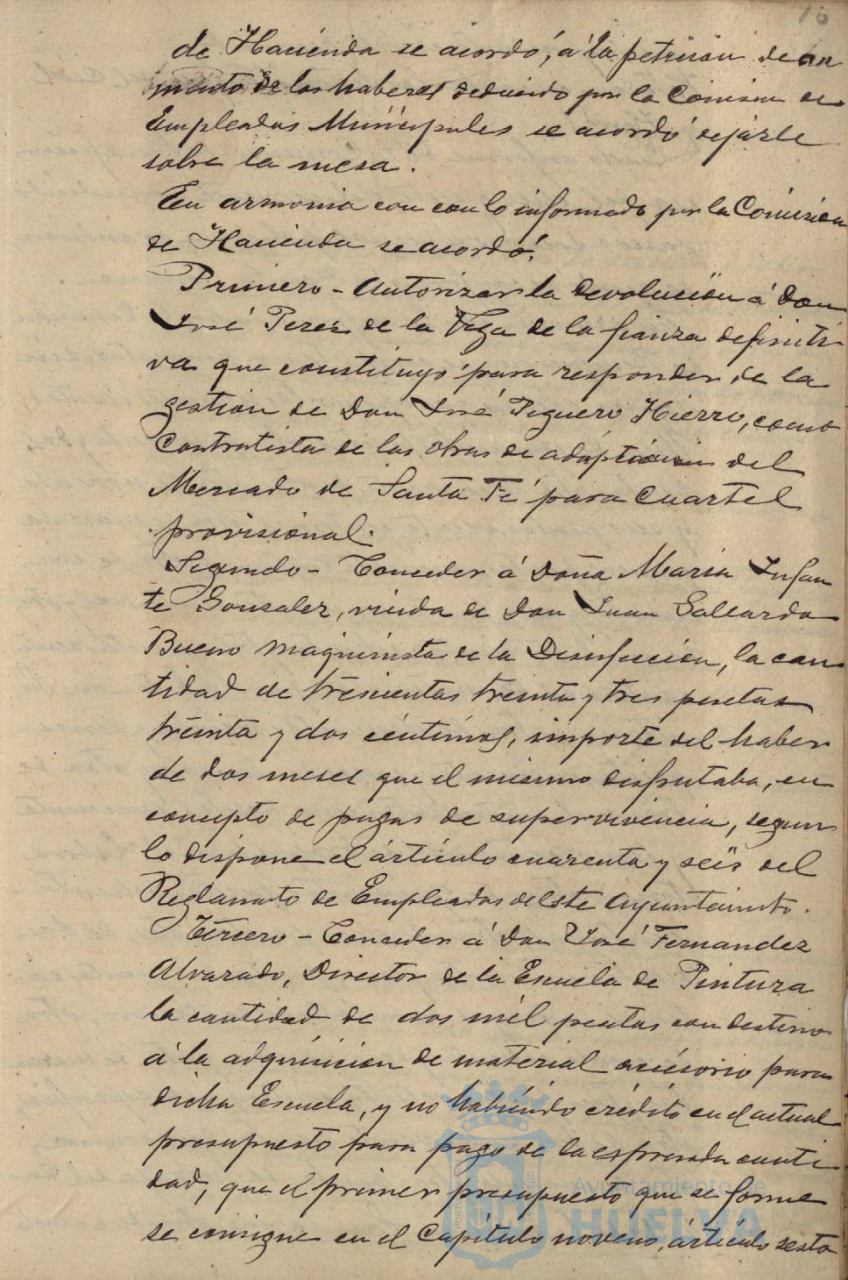 16
de Hacienda se acordó, á la petición de au
mento de los haberes deducido por la Comision de
Empleados Municipales se acordó dejarle
sobre la mesa.
En armonia con con lo informado por la Comision
de Hacienda se acordó:
Primero - Autorizar la devolución á Don
José Perez de la Vega de la fianza definiti
va que constituyó para responder de la
gestion de Don José Peguero Hierro, como
Contratista de las obras de adaptación del
Mercado de Santa Fé para Cuartel
provisional.
Segundo - Conceder á Doña Maria Infan
te Gonzalez, viuda de Don Juan Gallardo
Bueno maquinista de la Disinfeccion, la can
tidad de trescientas treinta y tres pesetas
treinta y dos céntimos, importe del haber
de dos meses que el mismo disfrutaba, en
concepto de pagas de supervivencia, segun
lo dispone el artículo cuarenta y seis del
Reglamto de Empleados deleste Ayuntaimto.
Tercero - Conceder á Don José Fernandez
Alvarado, Director de la Escuela de Pintura
la cantidad de dos mil pesetas con destino
á la adquisicion de material accesorio para
dicha Escuela, y no habiendo crédito en el actual
presupuesto para pago de la espresada canti
dad, que el primer presupuesto que se forme
se consigne en el Capítulo noveno, artículo sesto
Ayuntamiento de
HUELVA